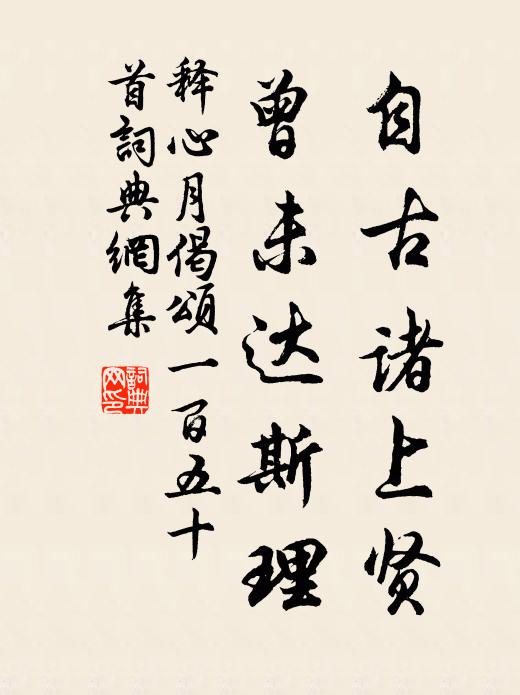 自古诸上贤
曾未达斯理
释心月偈颂一百五十
首詞典網集
詞典网印